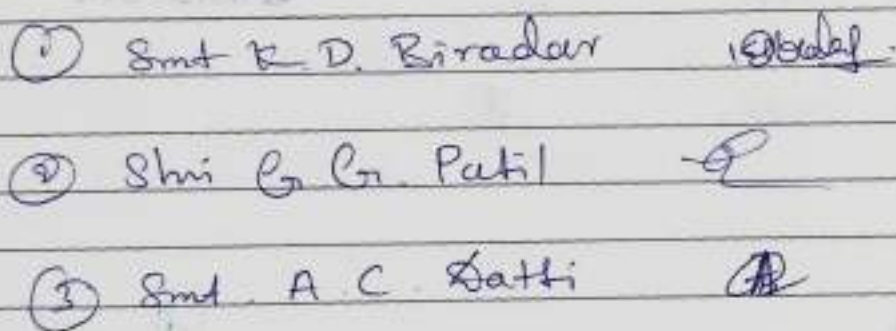 ① Smt K. D. Biradar
② Shri G. G. Patil
③ Smt. A. C. Datti